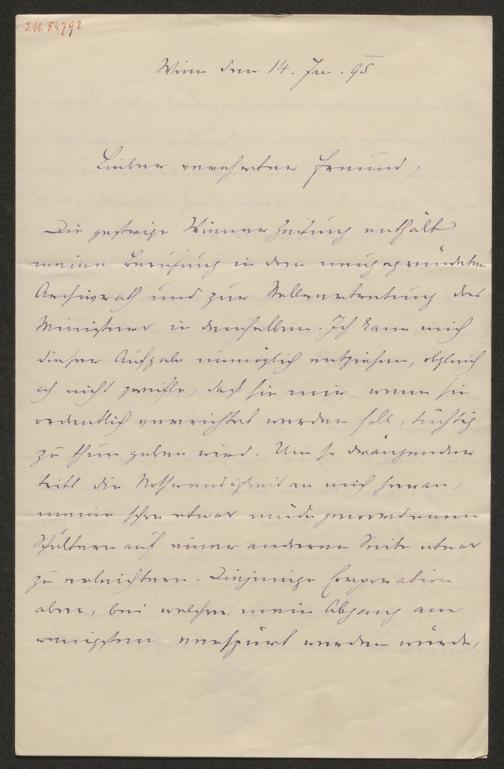 J.N. 54792
Wien den 14. Jan. 95
Lieber verehrter Freund,
Die gestrige Wiener Zeitung enthält
meine Berufung in den neugegründeten
Archivrath und zur Stellvertretung des
Ministers in demselben. Ich kann mich
dieser Aufgabe unmöglich entziehen, obgleich
ich nicht zweifle, daß sie mir, wenn sie
ordentlich verrichtet werden soll, tüchtig
zu thun geben wird. Um so drängender
tritt die Nothwendigkeit an mich heran,
meine schon etwas müde gewordenen
Schultern auf einer anderen Seite etwas
zu erleichtern. Diejenige Corporation
aber, bei welcher mein Abgang am
wenigsten verspürt werden würde,